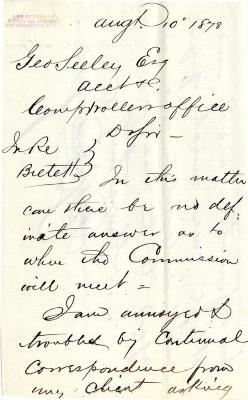 LAW OFFICES OF
Augt 10th 1878
Geo Seeley Esq
acct &c.
Comptrollers office
D Sir –
In Re
Bretell } In this matter
can there be no def-
inate answer as to
when the Commission
will meet =
I am annoyed &
troubled by Continual
Correspondence from
my client asking